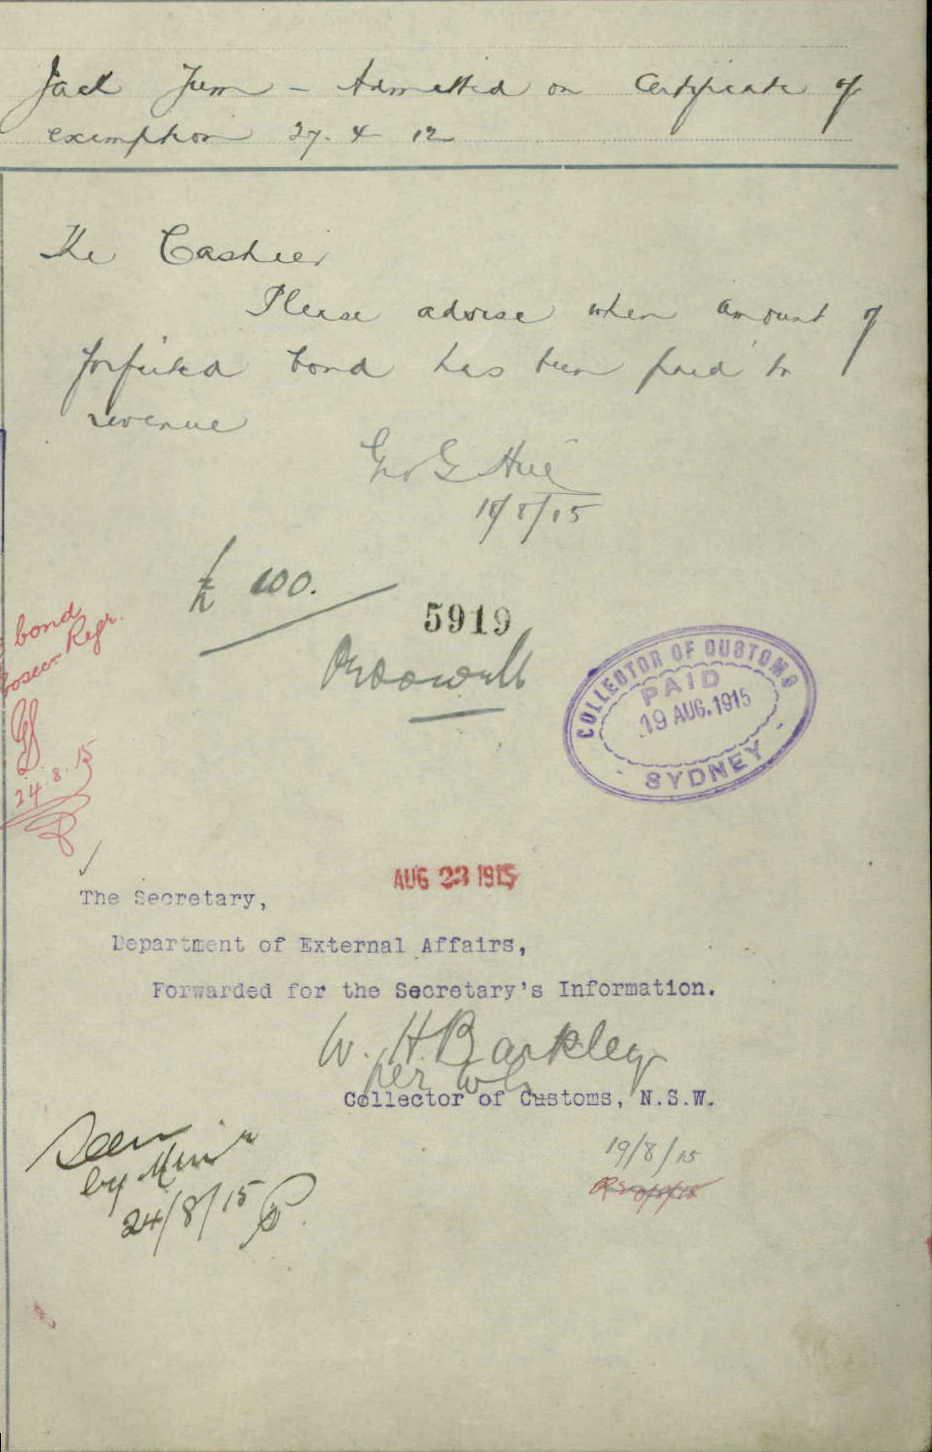 Jack Jum – Admitted on Certificate of
exemption 27. 4 12
The Cashier
Please advise when amount of
forfeited bond has been paid to
revenue
Geo G Hill
18/8/15
£ 100.
5919
COLLECTOR OF CUSTOMS
PAID
19 AUG. 1915
SYDNEY
bond
Regr.
24.8.15
AUG 23 1915
The Secretary,
Department of External Affairs,
Forwarded for the Secretary's Information.
W. H. Barkley
per
Collector of Customs, N.S.W.
19/8/15
Seen
by Minr
24/8/15